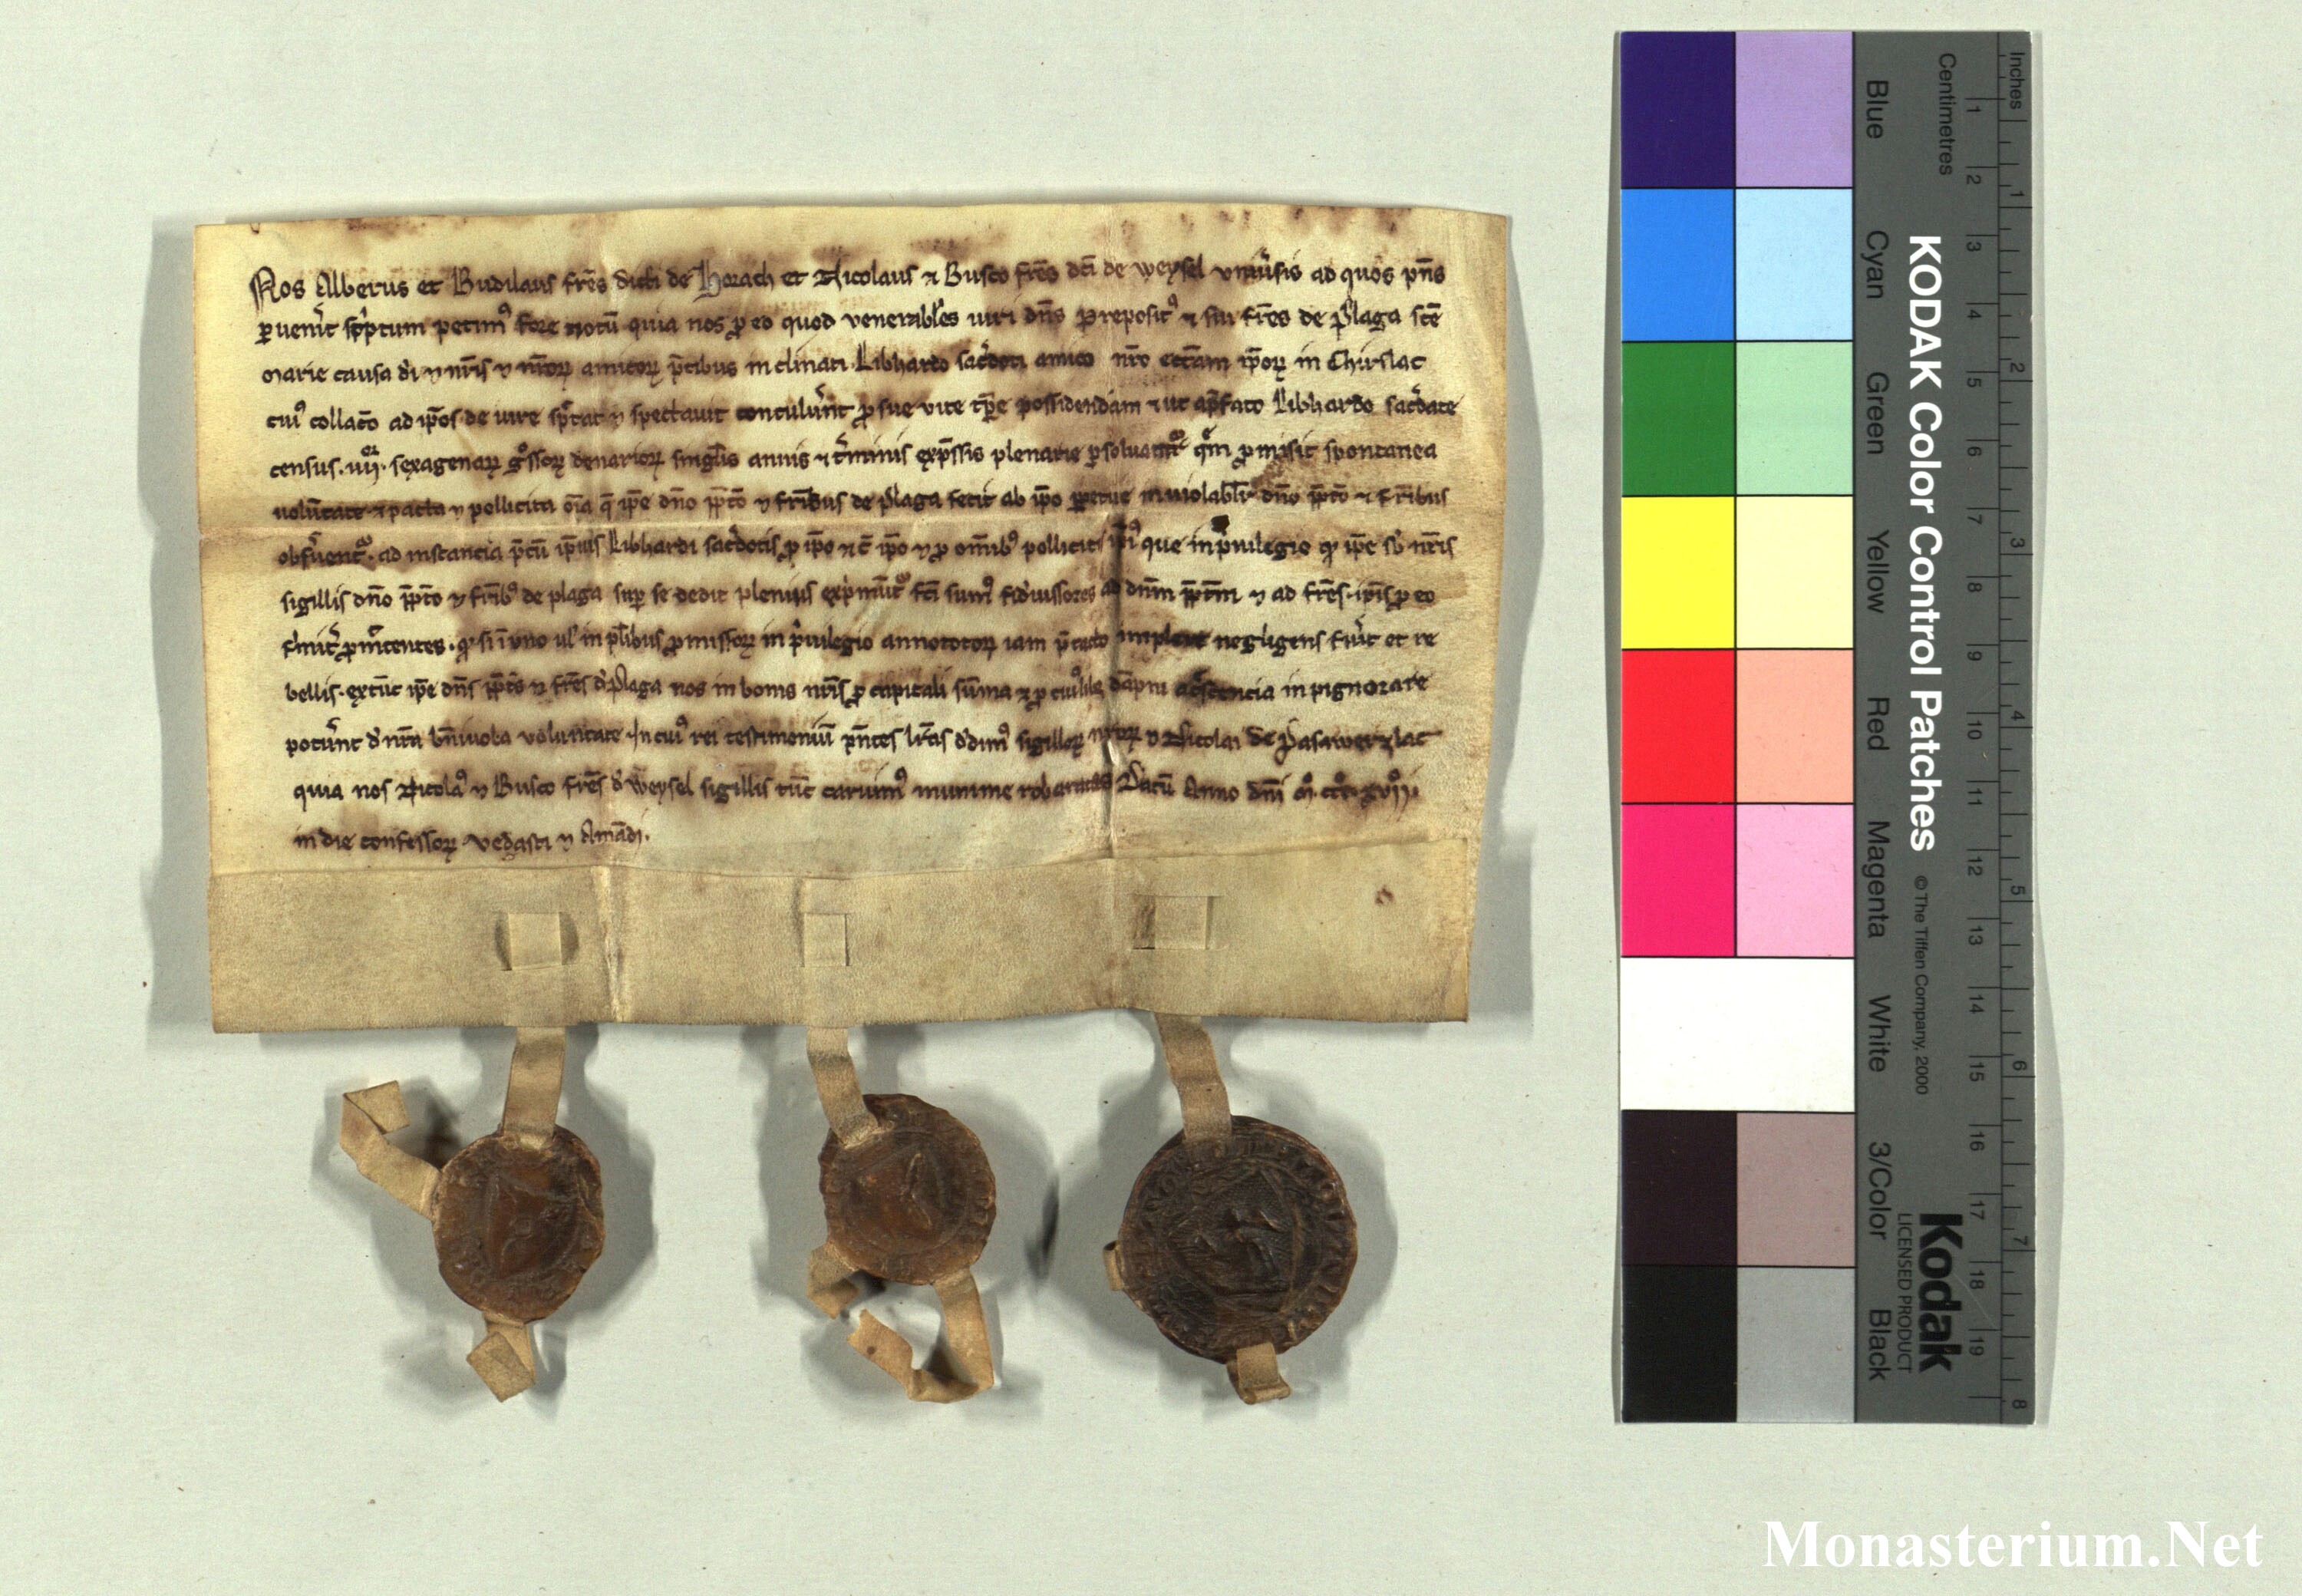 Nos Alberus et Budilaus fr̄es dicti de Horach et Nicolaus ⁊ Busco fr̄es dc̄i de weysel vniũsis ad quos pn̄s
ꝑuenˀit scˀptum petimꝰ fore notū quia nos ꝓ eo quod venerabˀles uiri dn̄s Prepositꝰ ⁊ sui fr̄es de Plaga sc̄e
Marie causa di ⁊ nr̄is ⁊ nr̄oꝝ amicoꝝ p̄cibus inclinati Libhardo sacˀdoti amico nr̄o ecc̄am ip̄oꝝ in Chirslac
cuiꝰ collac̄o ad ip̄os de iure spˀctat ⁊ spectauit contulˀunt ꝓ sue vite tp̄e possidendam ⁊ ut ap̄fato Libhardo sacˀdote
census .iiijor. sexagenaꝝ gˀossoꝝ denarioꝝ singlˀis annis ⁊ tˀminis exp̄ssis plenarie ꝑsoluatˀ qˀm ꝓmisit spontanea
uolūtate ⁊ pacta ⁊ pollicita om̄ia q̄ ip̄e dn̄o pp̄to ⁊ fr̄ibus de Plaga fecit ab ip̄o ꝑpetue inuiolabilˀr dn̄o pp̄to ⁊ fr̄ibus
obsˀuentˀ. ad instancia p̄cū ip̄ius Libhardi sacˀdotis ꝓ ip̄o ⁊ c̄ ip̄o ⁊ ꝓ om̄ibꝰ pollicitˀ que in pˀuilegio qˀ ip̄e sb nr̄is
sigillis dn̄o pp̄to ⁊ fr̄ibꝰ de plaga suꝑ se dedit plenius expˀmūtˀ fc̄i sumꝰ fidˀiussores ad dn̄m pp̄tm ⁊ ad fr̄es ip̄is ꝓ eo
fˀmitˀ ꝓmˀtentes. qˀ si ī vno ul in plˀibus ꝓmissoꝝ in pˀuilegio annototoꝝ iam p̄tacto implere negligens fuˀit et re
bellis. extūc ip̄e dn̄s pp̄ts ⁊ fr̄es dˀ Plaga nos in bonis nr̄is ꝓ capitali sūma ⁊ ꝓ cuiꝰlibꝫ dāpni acˀscencia inpignorare
potˀunt dˀ nr̄a bn̄iuola voluntate. In cuiꝰ rei testimoniū pn̄tes lr̄as dˀdimꝰ sigilloꝝ nr̄oꝝ ⁊ Nicolai de Pasawerzlac
quia nos Nicolaꝰ ⁊ Busco fr̄es dˀ weysel sigillis tūc caruimꝰ munime roboratas Datū Anno dn̄i mͦ. cccͦ. xvijͦ.
in die confessoꝝ vedasti ⁊ Amādi.
Inches
Centimetres
1 2 3 4 5 6 7 8 9 10 11 12 13 14 15 16 17 18 19
1 2 3 4 5 6 7 8
KODAK Color Control Patches © The Tiffen Company, 2000
Kodak
LICENSED PRODUCT
Blue Cyan Green Yellow Red Magenta White 3/Color Black
Monasterium.Net